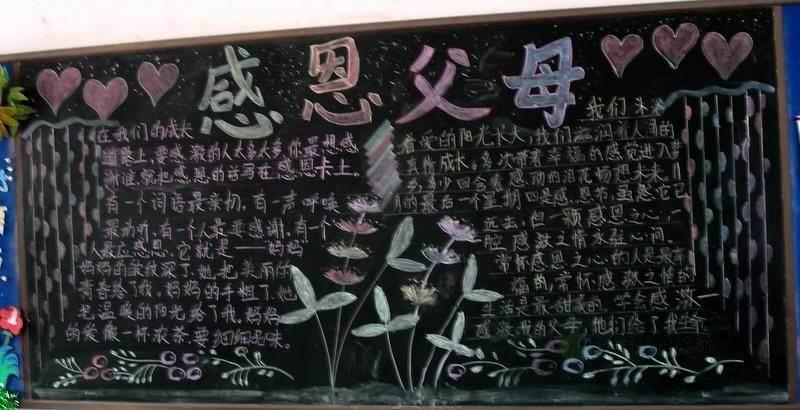 感恩父母
在我们的成长
道路上,要感激的人太多太多,你最想感
谢谁,就把感恩的话写在感恩卡上。
有一个词语最亲切,有一声呼唤
最动听,有一个人最要感谢,有一个
人最应感恩,它就是——妈妈
妈妈的皱纹深了,她把美丽的
青春给了我,妈妈的手粗了,她
把温暖的阳光给了我,妈妈
的爱像一杯浓茶,要细细品味。
我们沐浴
着爱的阳光长大,我们滋润着人间的
真情成长,多次带着幸福的感觉进入梦
乡,多少回含着感动的泪花畅想未来,11
月的最后一个星期四是感恩节,虽然它已
远去,但一颗感恩之心,一
腔感激之情永驻心间。
常怀感恩之心的人是最幸
福的,常怀感激之情的
生活是最甜美的。学会感激
感激我的父母,他们给了我生命